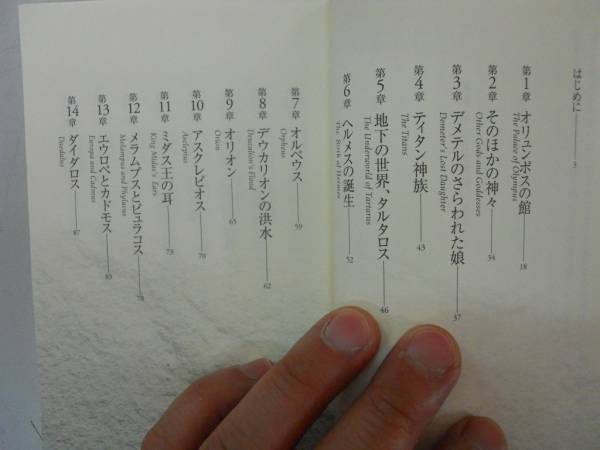 はじめに 3
第1章 オリュンポスの館 18
The Palace of Olympus
第2章 そのほかの神々 34
Other Gods and Goddesses
第3章 デメテルのさらわれた娘 37
Demeter's Lost Daughter
第4章 ティタン神族 43
The Titans
第5章 地下の世界、タルタロス 46
The Underworld of Tartarus
第6章 ヘルメスの誕生 52
The Birth of Hermes
第7章 オルペウス 59
Orpheus
第8章 デウカリオンの洪水 62
Deucalion's Flood
第9章 オリオン 65
Orion
第10章 アスクレピオス 70
Asclepius
第11章 ミダス王の耳 73
King Midas's Ears
第12章 メラムプスとピュラコス 78
Melampus and Phylacus
第13章 エウロペとカドモス 83
Europa and Cadmus
第14章 ダイダロス 87
Daedalus